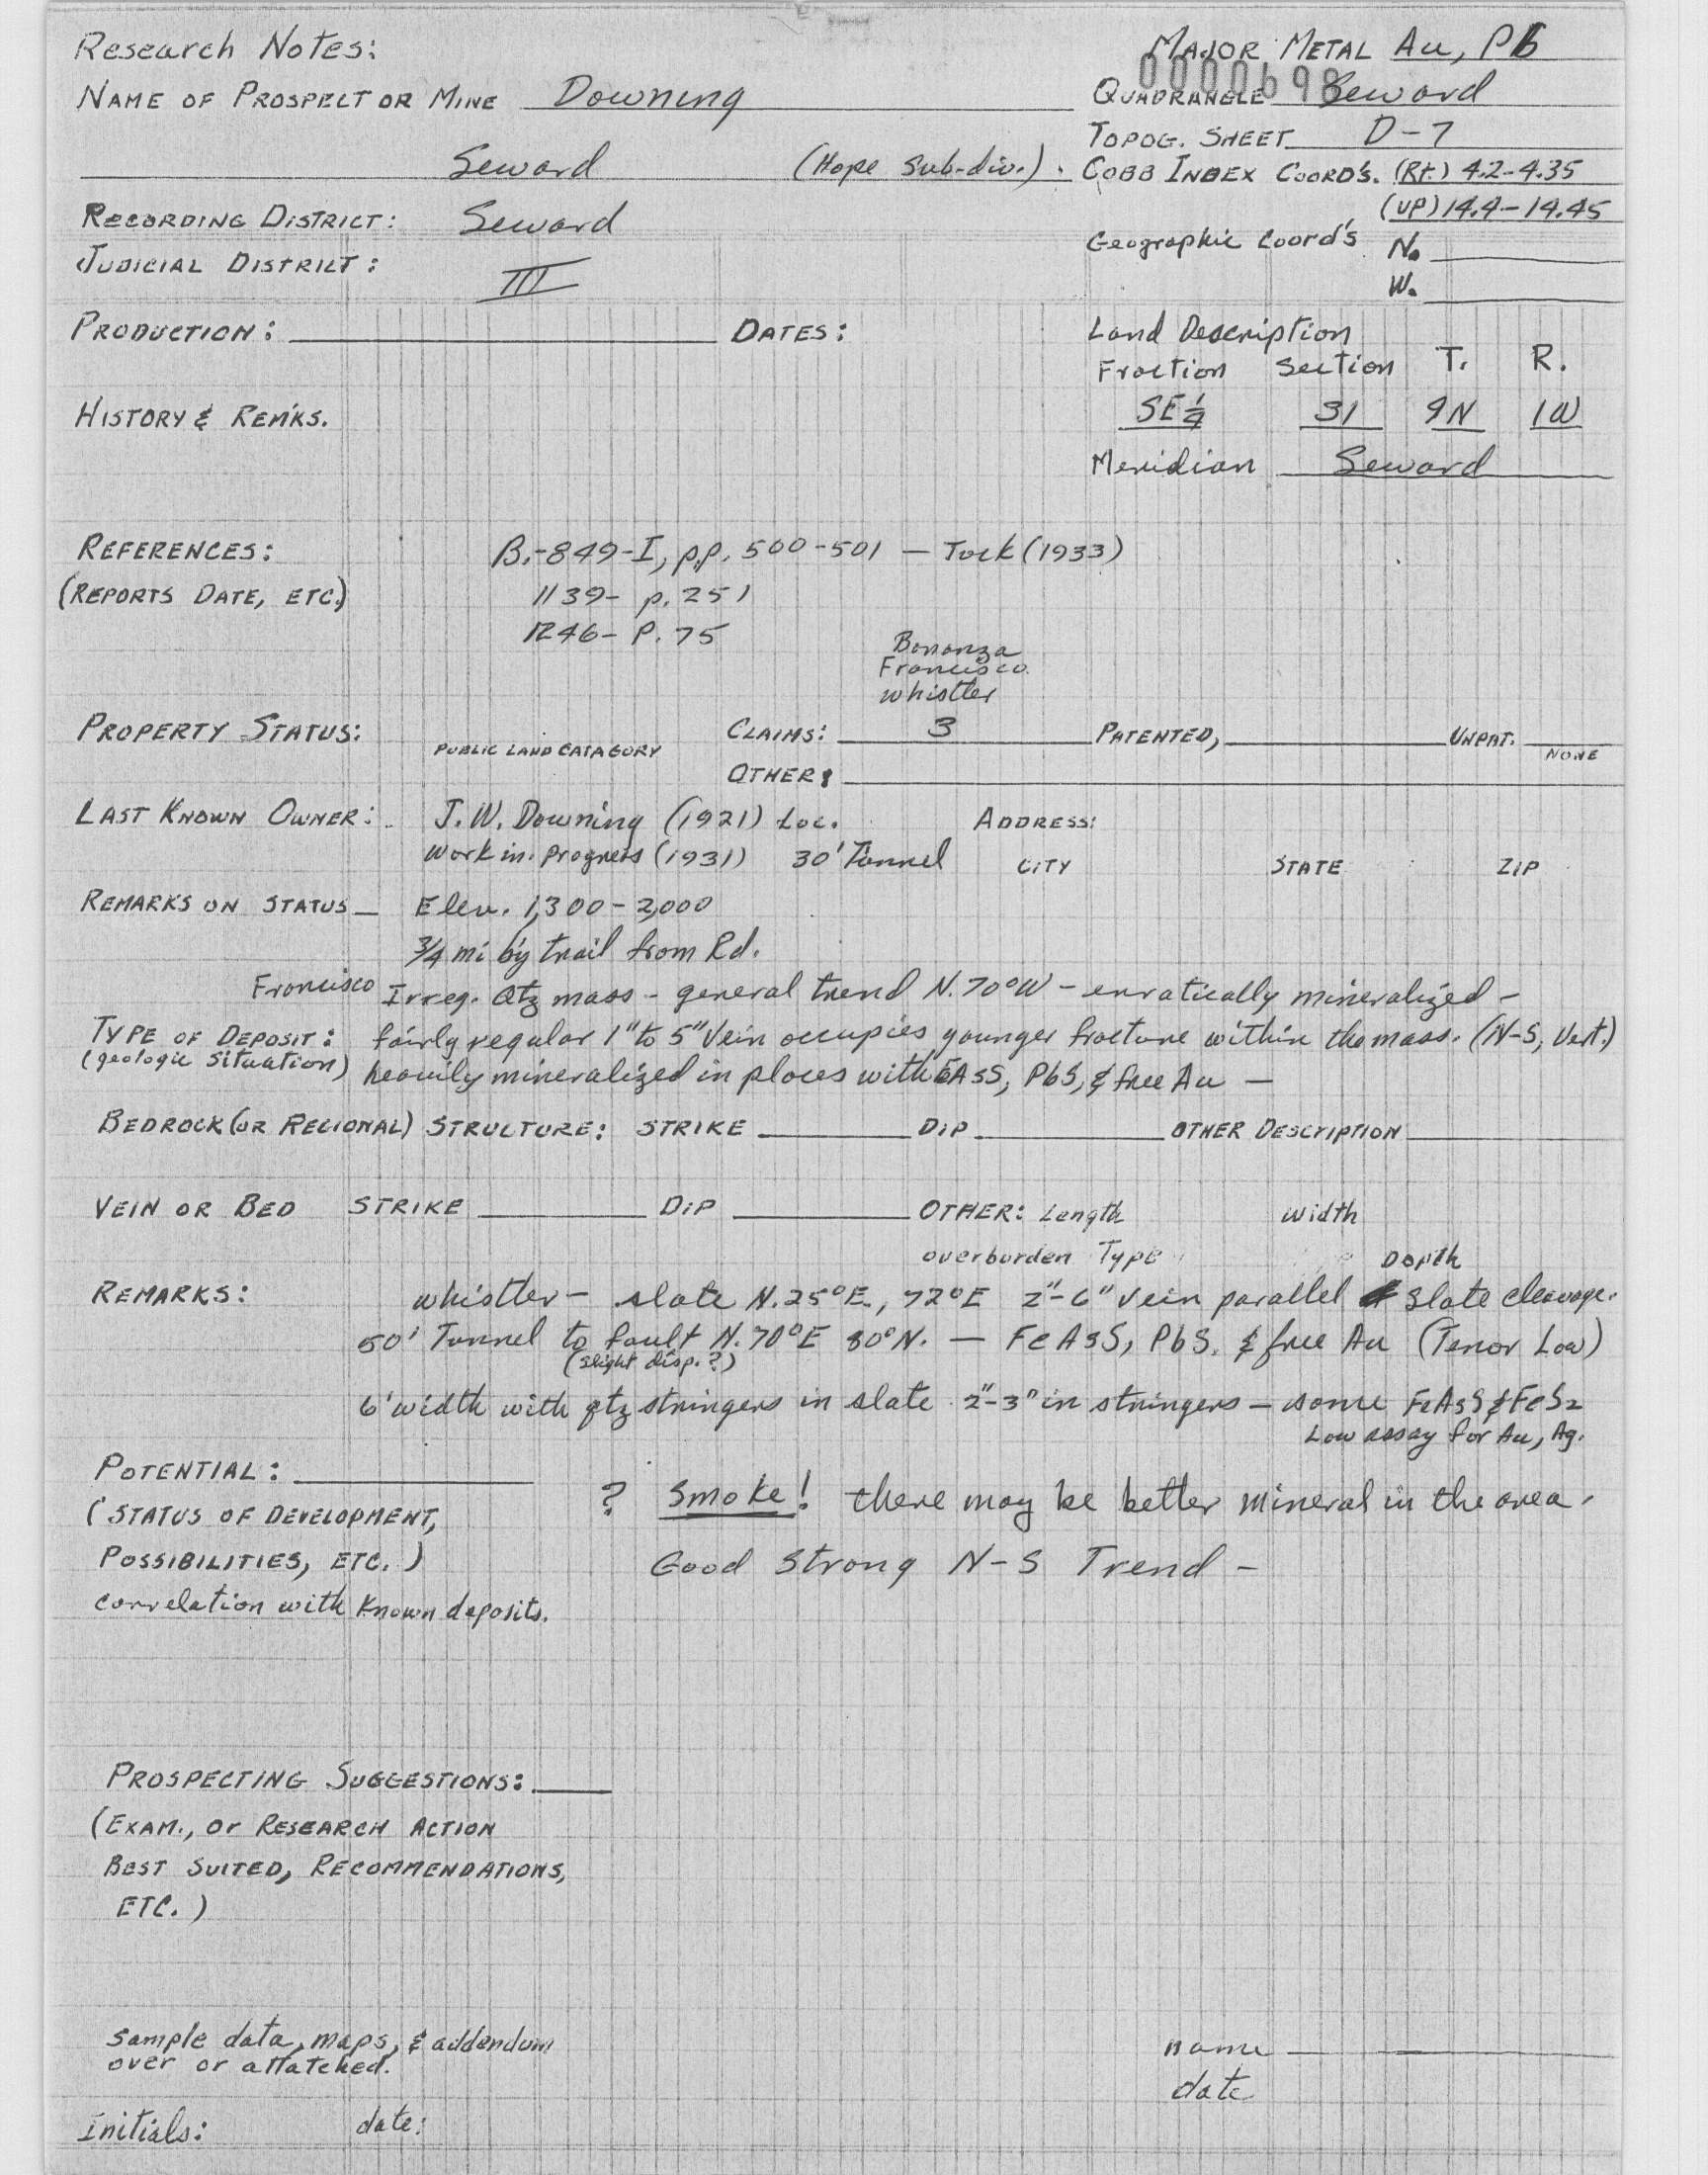 Research Notes:
MAJOR METAL Au, Pb
0000698
NAME OF PROSPECT OR MINE Downing
QUADRANGLE Seward
TOPOG. SHEET D-7
Seward (Hope Sub-div.).
COBB INDEX COORD'S. (Rt.) 4.2-4.35
(UP) 14.4-14.45
RECORDING DISTRICT: Seward
Geographic Coord's N.
JUDICIAL DISTRICT: III
W.
PRODUCTION: DATES:
Land Description
Fraction Section T. R.
HISTORY & REM'KS.
SE 1/4 31 9N 1W
Meridian Seward
REFERENCES: B.-849-I, p.p. 500-501 - Tuck (1933)
(REPORTS DATE, ETC.) 1139- p. 251
1246- P. 75
Bonanza
Francisco
Whistler
PROPERTY STATUS: CLAIMS: 3 PATENTED, UNPAT.
PUBLIC LAND CATAGORY
NONE
OTHER:
LAST KNOWN OWNER: J.W. Downing (1921) Loc. ADDRESS:
Work in progress (1931) 30' Tunnel CITY STATE ZIP
REMARKS ON STATUS Elev. 1,300-2,000
3/4 mi by trail from Rd.
Francisco Irreg. Qtz mass - general trend N. 70° W - erratically mineralized -
TYPE OF DEPOSIT: fairly regular 1" to 5" Vein occupies younger fracture within the mass. (N-S, Vert.)
(geologic situation) heavily mineralized in places with AsS, PbS, & free Au -
BEDROCK (OR REGIONAL) STRUCTURE: STRIKE DIP OTHER DESCRIPTION
VEIN OR BED STRIKE DIP OTHER: Length Width
overburden Type Depth
REMARKS: Whistler - slate N. 25° E., 72° E 2"-6" Vein parallel slate cleavage.
50' Tunnel to fault N. 70° E 80° N. - FeAsS, PbS, & free Au (Tenor Low)
(slight disp.?)
6' width with qtz stringers in slate 2"-3" in stringers - some FeAsS & FeS2
Low assay for Au, Ag.
POTENTIAL:
? Smoke! there may be better mineral in the area.
(STATUS OF DEVELOPMENT,
POSSIBILITIES, ETC.) Good Strong N-S Trend -
correlation with known deposits.
PROSPECTING SUGGESTIONS:
(EXAM., or RESEARCH ACTION
BEST SUITED, RECOMMENDATIONS,
ETC.)
sample data, maps, & addendum
over or attatched.
name
date
Initials: date: